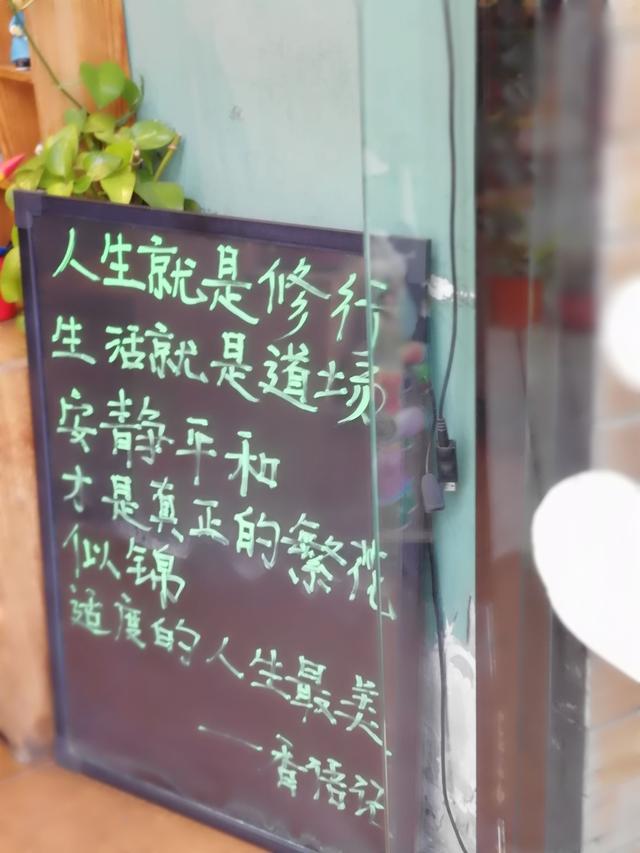 人生就是修行
生活就是道场
安静平和
才是真正的繁花
似锦
适度的人生最美
——香悟记